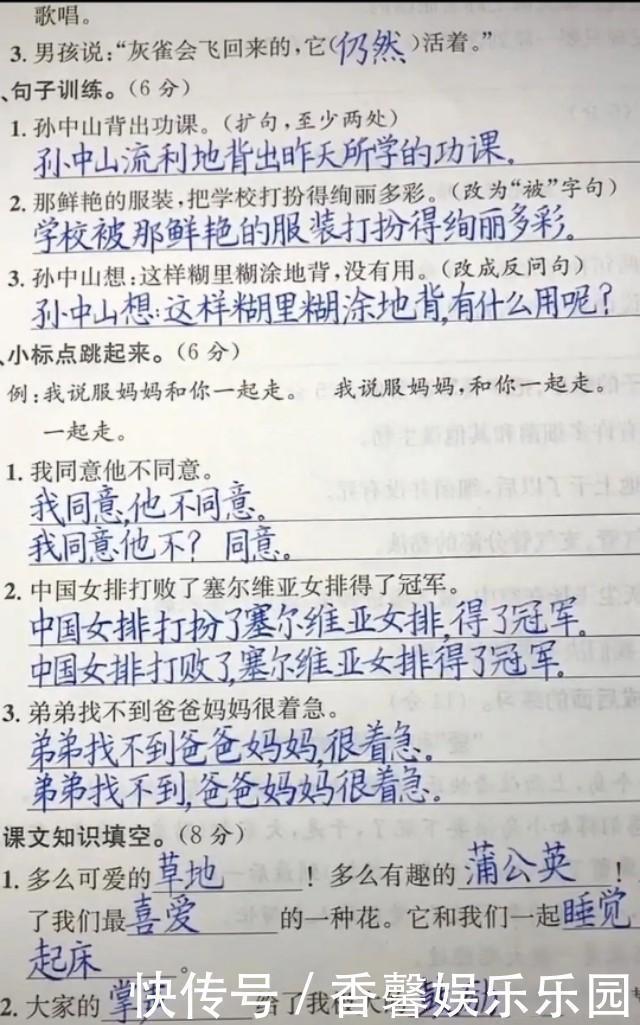 歌唱。
3. 男孩说:“灰雀会飞回来的,它(仍然)活着。”
、句子训练。(6 分)
1. 孙中山背出功课。(扩句,至少两处)
孙中山流利地背出昨天所学的功课。
2. 那鲜艳的服装,把学校打扮得绚丽多彩。(改为“被”字句)
学校被那鲜艳的服装打扮得绚丽多彩。
3. 孙中山想:这样糊里糊涂地背,没有用。(改成反问句)
孙中山想:这样糊里糊涂地背,有什么用呢?
、小标点跳起来。(6 分)
例:我说服妈妈和你一起走。 我说服妈妈,和你一起走。
一起走。
1. 我同意他不同意。
我同意,他不同意。
我同意他不? 同意。
2. 中国女排打败了塞尔维亚女排得了冠军。
中国女排打扮了塞尔维亚女排,得了冠军。
中国女排打败了,塞尔维亚女排得了冠军。
3. 弟弟找不到爸爸妈妈很着急。
弟弟找不到爸爸妈妈,很着急。
弟弟找不到,爸爸妈妈很着急。
课文知识填空。(8 分)
1. 多么可爱的草地!多么有趣的蒲公英!
了我们最喜爱的一种花。它和我们一起睡觉
起床。
2. 大家的掌 给了我
快传号 / 香馨娱乐乐园